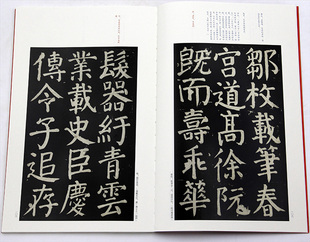 鄒枚載筆春
宮道高徐阮
既而壽乖華
髮器紆青雲
業載史臣慶
傳令子追存